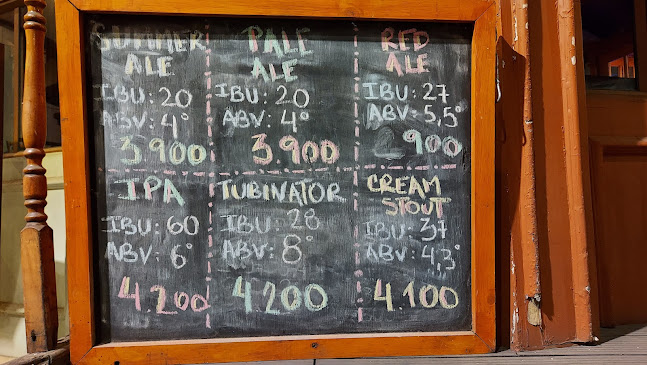 SUMMER
ALE
IBU: 20
ABV: 4°
3.900
PALE
ALE
IBU: 20
ABV: 4°
3.900
RED
ALE
IBU: 27
ABV: 5,5°
900
IPA
IBU: 60
ABV: 6°
4.200
TUBINATOR
IBU: 28
ABV: 8°
4.200
CREAM
STOUT
IBU: 37
ABV: 4,3°
4.100